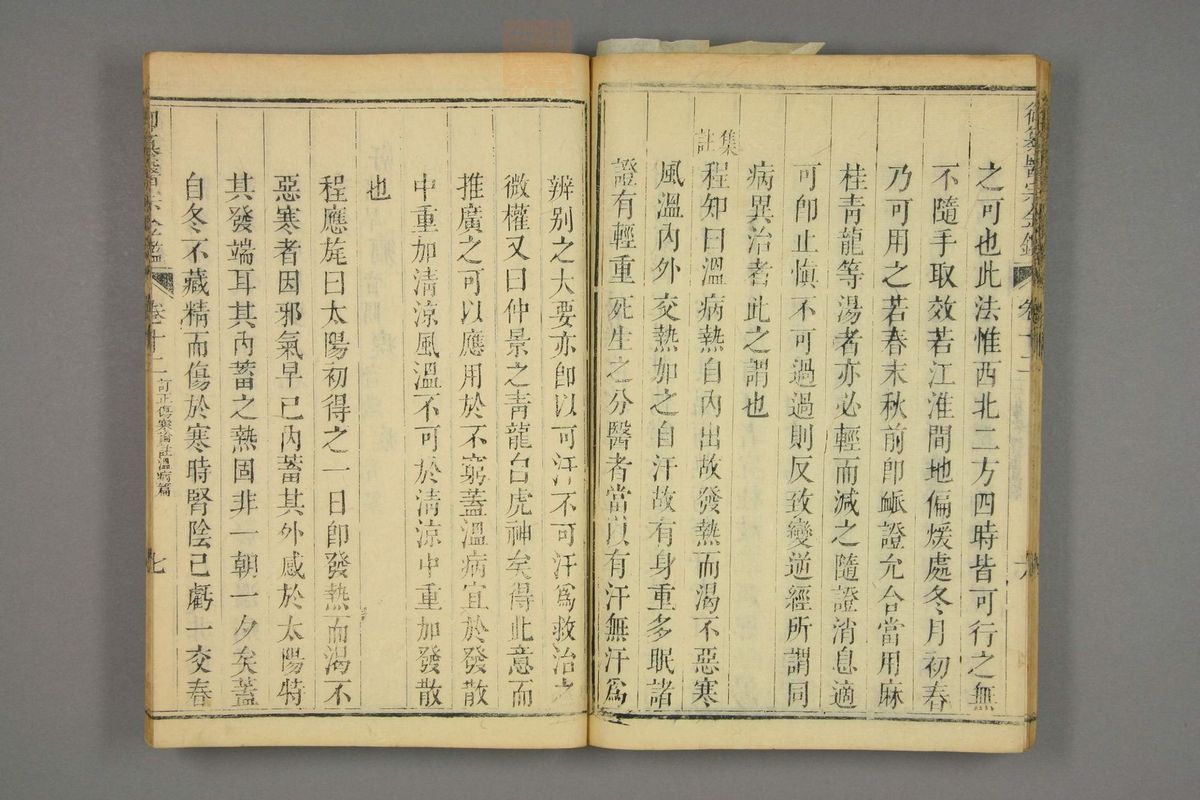 御纂醫宗金鑑 卷十二 六
之可也此法惟西北二方四時皆可行之無
不隨手取效若江淮間地偏煖處冬月初春
乃可用之若春末秋前卽衇證允合當用麻
桂靑龍等湯者亦必輕而減之隨證消息適
可卽止愼不可過過則反致變逆經所謂同
病異治者此之謂也
集註
程知曰溫病熱自內出故發熱而渴不惡寒
風溫內外交熱加之自汗故有身重多眠諸
證有輕重死生之分醫者當以有汗無汗爲
辨别之大要亦卽以可汗不可汗爲救治之
微權又曰仲景之靑龍白虎神矣得此意而
推廣之可以應用於不窮蓋溫病宜於發散
中重加淸涼風溫不可於淸涼中重加發散
也
程應旄曰太陽初得之一日卽發熱而渴不
惡寒者因邪氣早已內蓄其外感於太陽特
其發端耳其內蓄之熱固非一朝一夕矣蓋
自冬不藏精而傷於寒時腎陰已虧一交春
御纂醫宗金鑑 卷十二 訂正傷寒論註溫病篇 七